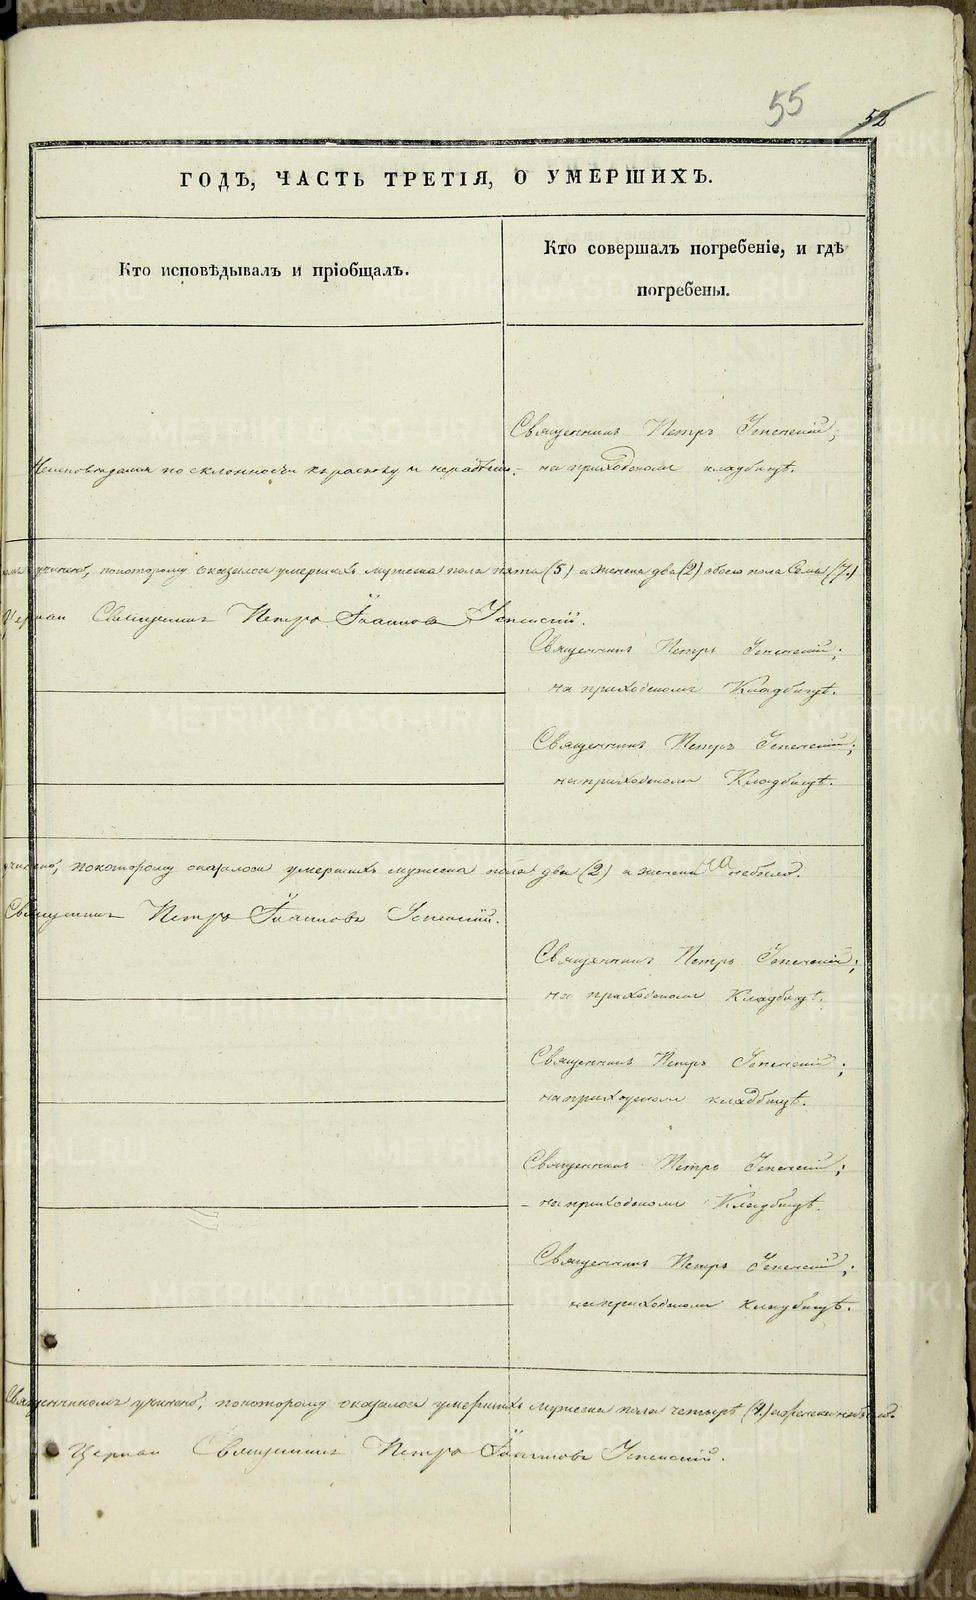 55
52
ГОДѢ, ЧАСТЬ ТРЕТІЯ, О УМЕРШИХЪ.
Кто исповѣдывалъ и пріобщалъ.
Кто совершалъ погребеніе, и гдѣ
погребены.
Священникъ Петръ Успенскій;
Неисповѣданъ по склонности къ расколу и
на приходскомъ кладбищѣ.
учинено, покоторому оказалось умершихъ мужеска пола пять (5) а женска два (2) обоего пола Семь (7.)
Священникъ Петръ Іоанновъ Успенскій.
Священникъ Петръ Успенскій;
на приходскомъ Кладбищѣ.
Священникъ Петръ Успенскій;
на приходскомъ Кладбищѣ.
учинено, покоторому оказалось умершихъ мужеска пола два (2) а женска небыло.
Священникъ Петръ Іоанновъ Успенскій.
Священникъ Петръ Успенскій;
на приходскомъ Кладбищѣ.
Священникъ Петръ Успенскій;
на приходскомъ кладбищѣ.
Священникъ Петръ Успенскій;
на приходскомъ Кладбищѣ.
Священникъ Петръ Успенскій;
на приходскомъ кладбищѣ.
Священникомъ учинено, покоторому оказалось умершихъ мужеска пола четыре (4.) а женска небыло.
Церкви Священникъ Петръ Іоанновъ Успенскій.
METRIKI.GASO-URAL.RU